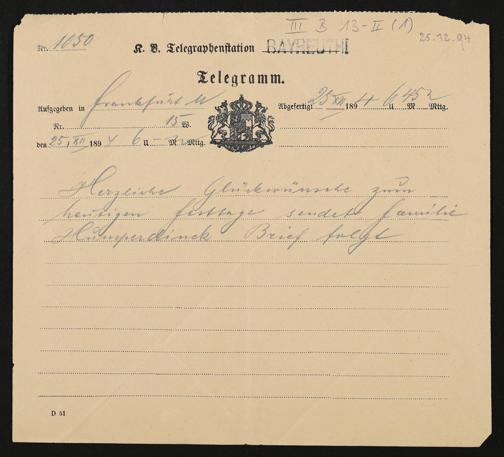 III B 13-II (1)
25.12.94
Nr. 1050
K. B. Telegraphenstation BAYREUTH
Telegramm.
Aufgegeben in Frankfurt M
Abgefertigt 25/XII 1894 6 U. 45 M. Mttg.
Nr. 15 W.
den 25/XII 1894 6 U. — M. Mttg.
Herzliche Glückwünsche zum
heutigen festtage sendet familie
Humperdinck Brief folgt
D 51